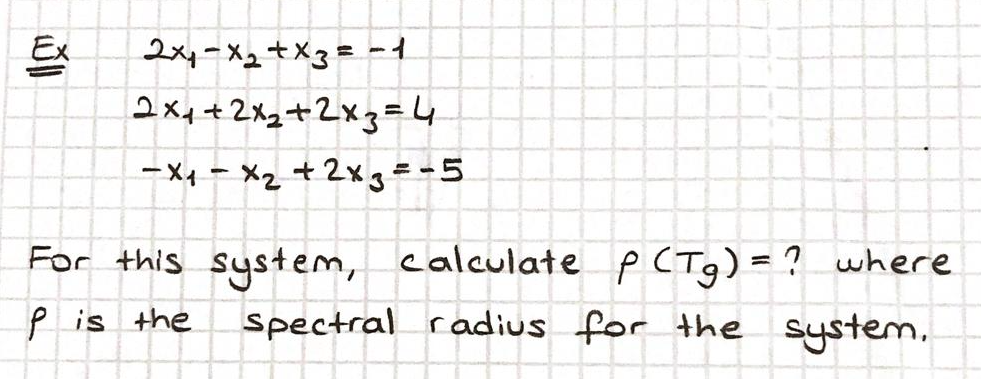 Ex 2x₁ - x₂ + x₃ = -1
2x₁ + 2x₂ + 2x₃ = 4
-x₁ - x₂ + 2x₃ = -5
For this system, calculate ρ(Tg) = ? where
ρ is the spectral radius for the system.